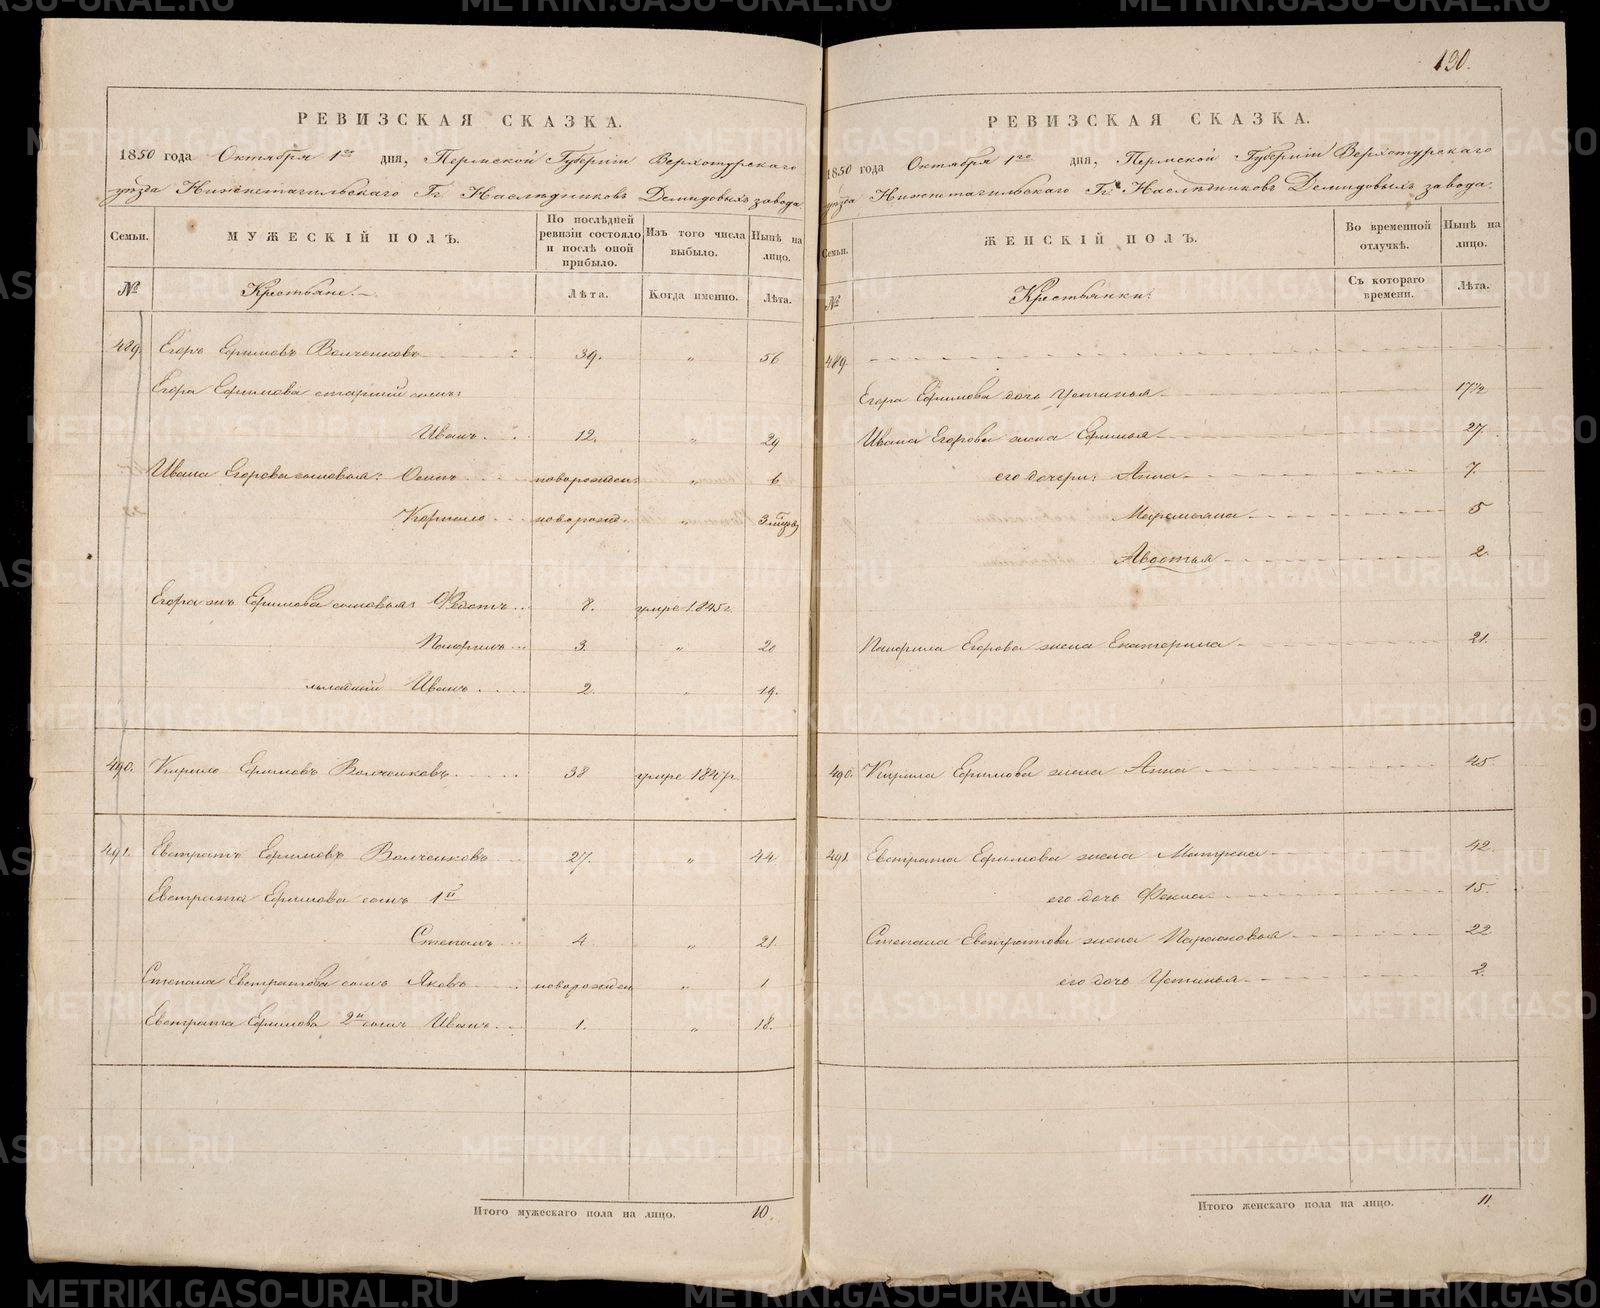 130.
РЕВИЗСКАЯ СКАЗКА.
1850 года Октября 1го дня, Пермской Губерніи Верхотурскаго
уѣзда Нижнетагильскаго Гг. Наслѣдниковъ Демидовыхъ завода
Семьи.
МУЖЕСКІЙ ПОЛЪ.
По послѣдней ревизіи состояло и послѣ оной прибыло.
Изъ того числа выбыло.
Нынѣ на лицо.
№
Крестьяне.
Лѣта.
Когда именно.
Лѣта.
489. Егоръ Ефимовъ Волченковъ 39. " 56
Егора Ефимова старший сынъ:
Иванъ 12. " 29
Ивана Егорова сыновья: Осипъ новорожден: " 6
Корнило новорожд. " 3 мѣсяц
Егора жъ Ефимова сыновья: Федотъ 8. умре 1845 г.
Панфилъ 3. " 20
младший Иванъ 2. " 19.
490. Кирило Ефимовъ Волченковъ 38 умре 1847 г.
491. Евстратъ Ефимовъ Волченковъ 27. " 44
Евстрата Ефимова сынъ 1й
Степанъ 4 " 21
Степана Евстратова сынъ Яковъ новорожден " 1
Евстрата Ефимова 2й сынъ Иванъ 1. " 18.
Итого мужескаго пола на лицо. 10.
РЕВИЗСКАЯ СКАЗКА.
1850 года Октября 1го дня, Пермской Губерніи Верхотурскаго
уѣзда Нижнетагильскаго Гг. Наслѣдниковъ Демидовыхъ завода.
Семьи.
ЖЕНСКІЙ ПОЛЪ.
Во временной отлучкѣ.
Нынѣ на лицо.
№
Крестьянки:
Съ котораго времени.
Лѣта.
489.
Егора Ефимова дочь Устинья 17½
Ивана Егорова жена Ефимья 27.
его дочери: Анна 7.
Маремьяна 5
Авдотья 2.
Панфила Егорова жена Екатерина 21.
490. Кирила Ефимова жена Анна 45
491. Евстрата Ефимова жена Матрена 42.
его дочь Фекла 15.
Степана Евстратова жена Парасковья 22
его дочь Устинья 2.
Итого женскаго пола на лицо. 11.
METRIKI.GASO-URAL.RU